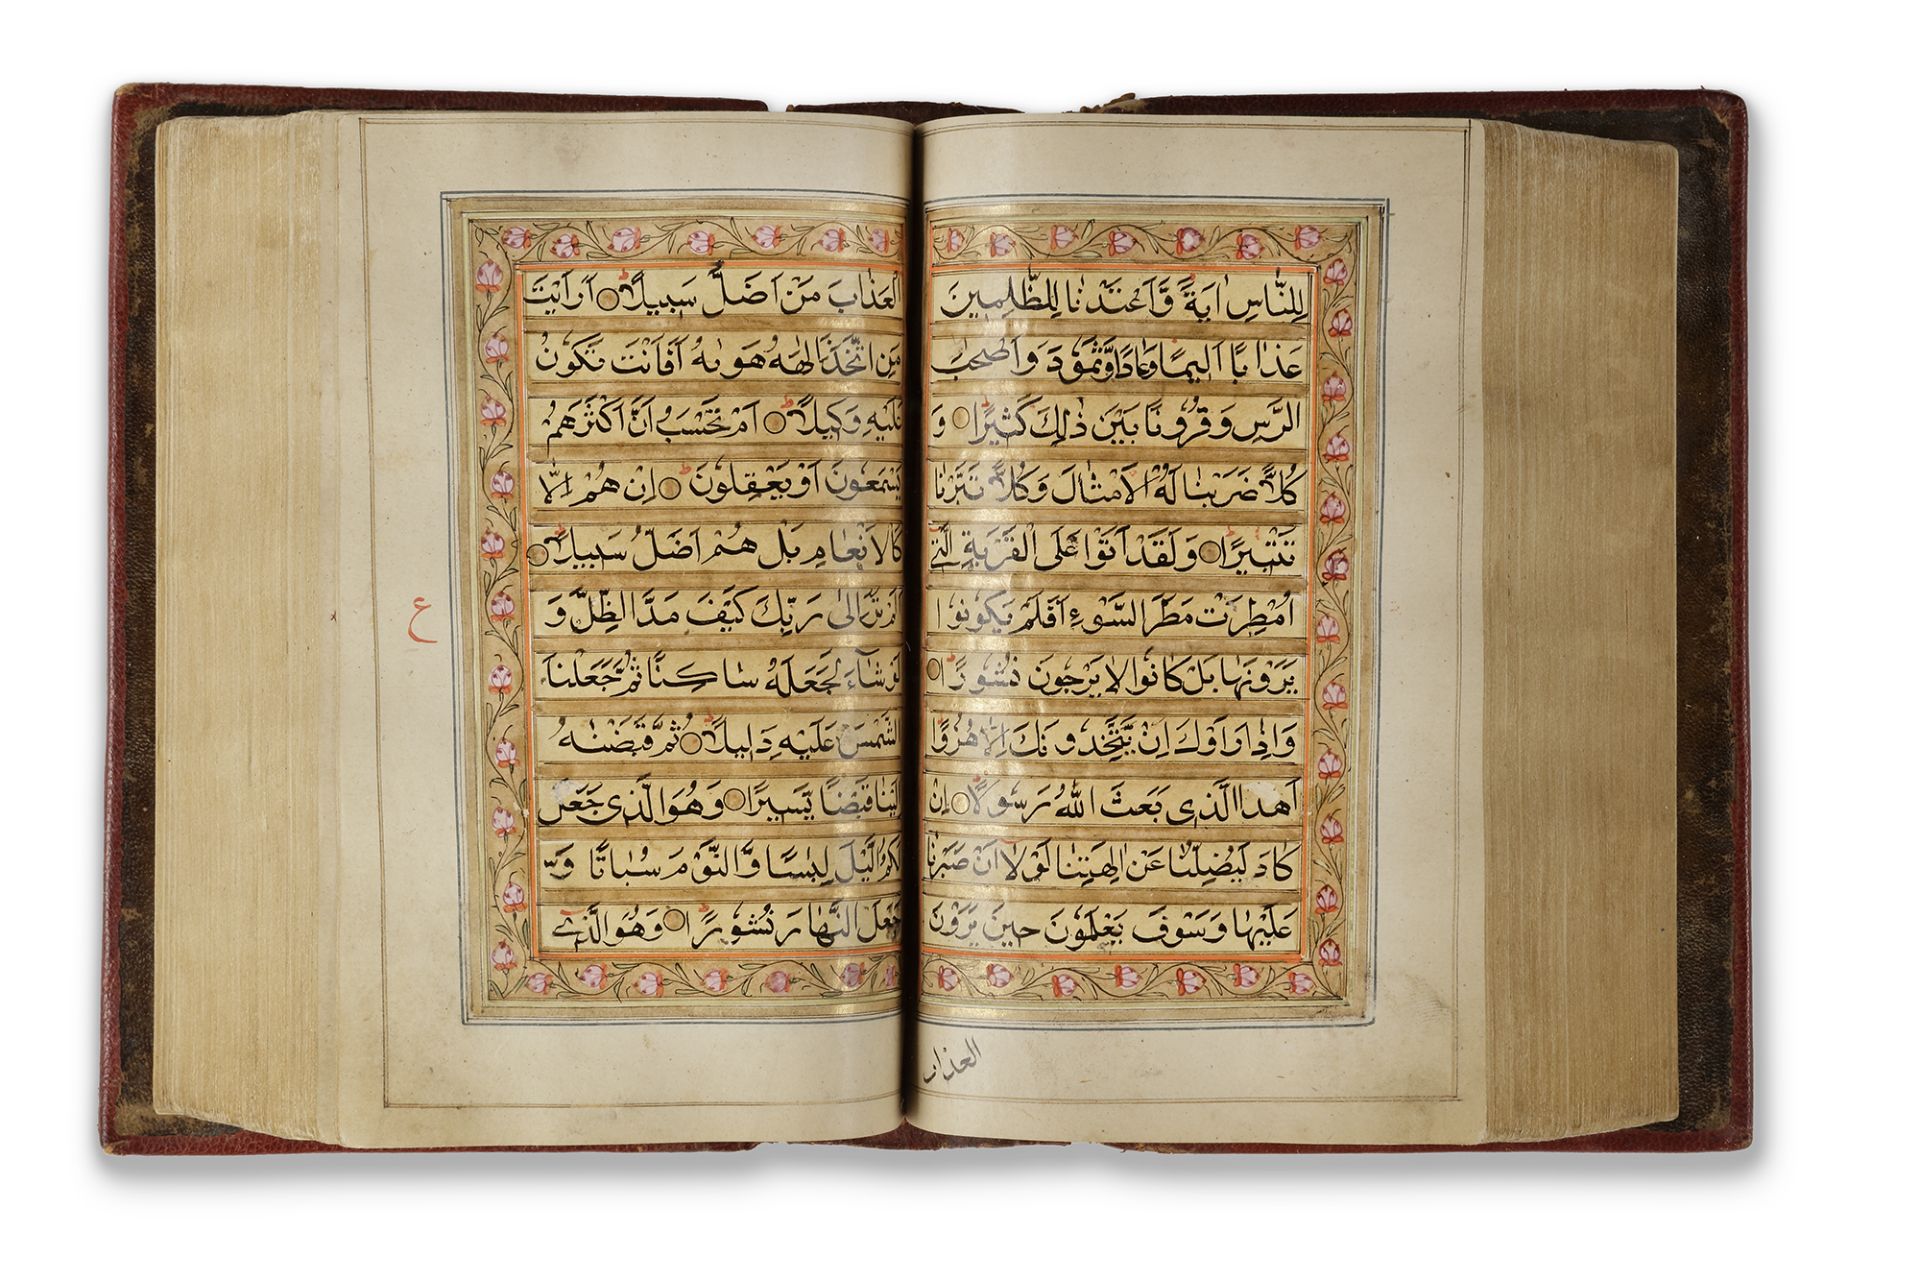 لِلنَّاسِ اٰيَةً وَّاَعْتَدْنَا لِلظّٰلِمِيْنَ
عَذَابًا اَلِيْمًا وَعَادًا وَّثَمُوْدَ وَاَصْحٰبَ
الرَّسِّ وَقُرُوْنًا بَيْنَ ذٰلِكَ كَثِيْرًا وَ
كُلًّا ضَرَبْنَا لَهُ الْاَمْثَالَ وَكُلًّا تَبَّرْنَا
تَتْبِيْرًا وَلَقَدْ اَتَوْا عَلَى الْقَرْيَةِ الَّتِيْ
اُمْطِرَتْ مَطَرَ السَّوْءِ اَفَلَمْ يَكُوْنُوْا
يَرَوْنَهَا بَلْ كَانُوْا لَا يَرْجُوْنَ نُشُوْرًا
وَاِذَا رَاَوْكَ اِنْ يَّتَّخِذُوْنَكَ اِلَّا هُزُوًا
اَهٰذَا الَّذِيْ بَعَثَ اللّٰهُ رَسُوْلًا اِنْ
كَادَ لَيُضِلُّنَا عَنْ اٰلِهَتِنَا لَوْلَا اَنْ صَبَرْنَا
عَلَيْهَا وَسَوْفَ يَعْلَمُوْنَ حِيْنَ يَرَوْنَ
العذاب
الْعَذَابَ مَنْ اَضَلُّ سَبِيْلًا اَرَاَيْتَ
مَنِ اتَّخَذَ اِلٰهَهُ هَوٰىهُ اَفَاَنْتَ تَكُوْنُ
عَلَيْهِ وَكِيْلًا اَمْ تَحْسَبُ اَنَّ اَكْثَرَهُمْ
يَسْمَعُوْنَ اَوْ يَعْقِلُوْنَ اِنْ هُمْ اِلَّا
كَالْاَنْعَامِ بَلْ هُمْ اَضَلُّ سَبِيْلًا
اَلَمْ تَرَ اِلٰى رَبِّكَ كَيْفَ مَدَّ الظِّلَّ وَ
لَوْ شَاءَ لَجَعَلَهُ سَاكِنًا ثُمَّ جَعَلْنَا
الشَّمْسَ عَلَيْهِ دَلِيْلًا ثُمَّ قَبَضْنٰهُ
اِلَيْنَا قَبْضًا يَّسِيْرًا وَهُوَ الَّذِيْ جَعَلَ
لَكُمُ الَّيْلَ لِبَاسًا وَّالنَّوْمَ سُبَاتًا وَّ
جَعَلَ النَّهَارَ نُشُوْرًا وَهُوَ الَّذِيْ
ع